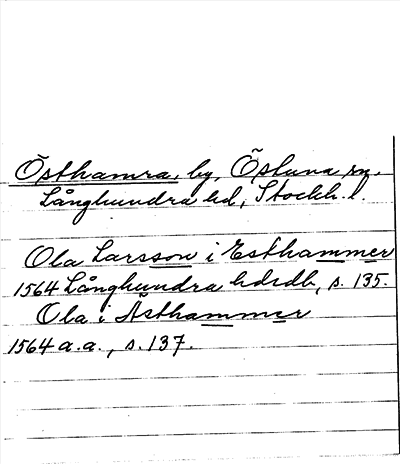 Östhamra, by, Östuna sn.
Långhundra hd, Stockh. l.
Ola Larsson i Esthammer
1564 Långhundra hdrdb, s. 135.
Ola i Åsthammer
1564 a.a., s. 137.